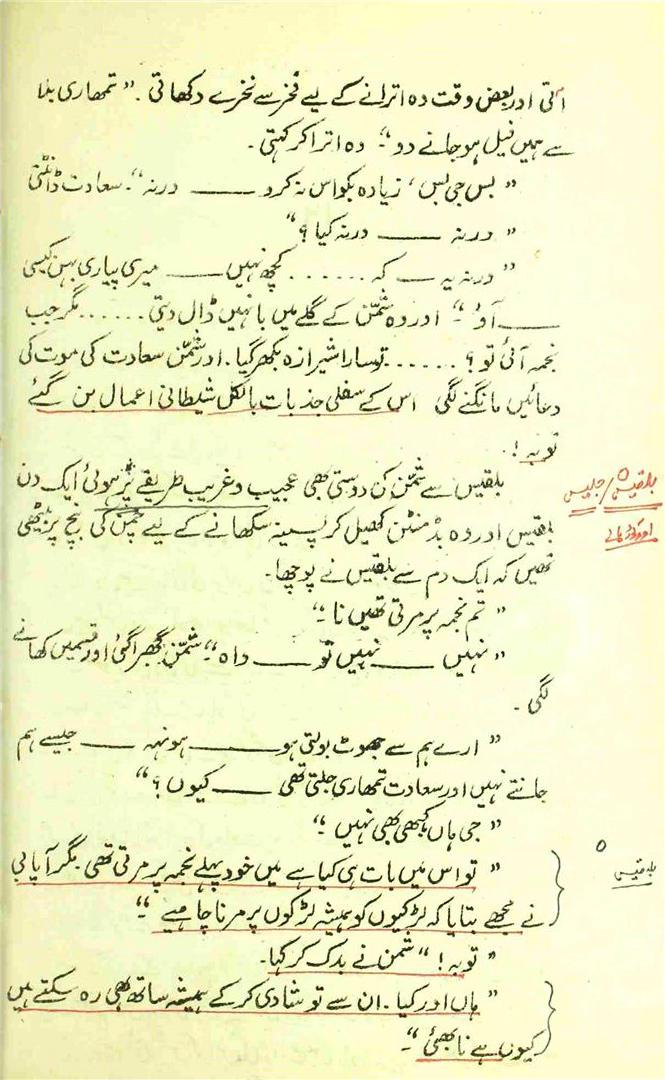 آتی اور بعض وقت وہ اترانے کے لیے فخر سے نخرے دکھاتی۔ ”تمھاری بلا
سے ہمیں فیل ہو جانے دو“۔ وہ اترا کر کہتی۔
”بس جی بس، زیادہ بکواس نہ کرو ـــــ ورنہ“۔ سعادت ڈانٹتی
”ورنہ ـــــ ورنہ کیا؟“
”ورنہ یہ ـــ کہ ...... کچھ نہیں ـــــ میری پیاری بہن کیسی
ـــــ آؤ“۔ اور وہ شمّن کے گلے میں بانہیں ڈال دیتی ...... مگر جب
نجمہ آئی تو؟ ...... تو سارا شیرازہ بکھر گیا۔ اور شمّن سعادت کی موت کی
دعائیں مانگنے لگی اس کے سفلی جذبات بالکل شیطانی اعمال بن گئے
توبہ!
بلقیس سے شمّن کی دوستی بھی عجیب و غریب طریقے پر ہوئی ایک دن
بلقیس / جلیس
بلقیس اور وہ بڈمنٹن کھیل کر پسینہ سکھانے کے لیے چمن کی بنچ پر بیٹھی
تھیں کہ ایک دم سے بلقیس نے پوچھا۔
”تم نجمہ پر مرتی تھیں نا“۔
”نہیں ـــــ نہیں تو ـــــ واہ“۔ شمّن گھبرا گئی اور قسمیں کھانے
لگی۔
”ارے ہم سے جھوٹ بولتی ہو ـــــ ہونہہ ـــــ جیسے ہم
جانتے نہیں اور سعادت تمھاری جلتی تھی ـــــ کیوں؟“
”جی ہاں کبھی بھی نہیں“۔
”تو اس میں بات ہی کیا ہے میں خود پہلے نجمہ پر مرتی تھی مگر آپا بی
بلقیس
نے مجھے بتایا کہ لڑکیوں کو ہمیشہ لڑکوں پر مرنا چاہیے“۔
”توبہ!“ شمن نے بدک کر کہا۔
”ہاں اور کیا۔ ان سے تو شادی کر کے ہمیشہ ساتھ بھی رہ سکتے ہیں
کیوں ہے نا بھئی“۔